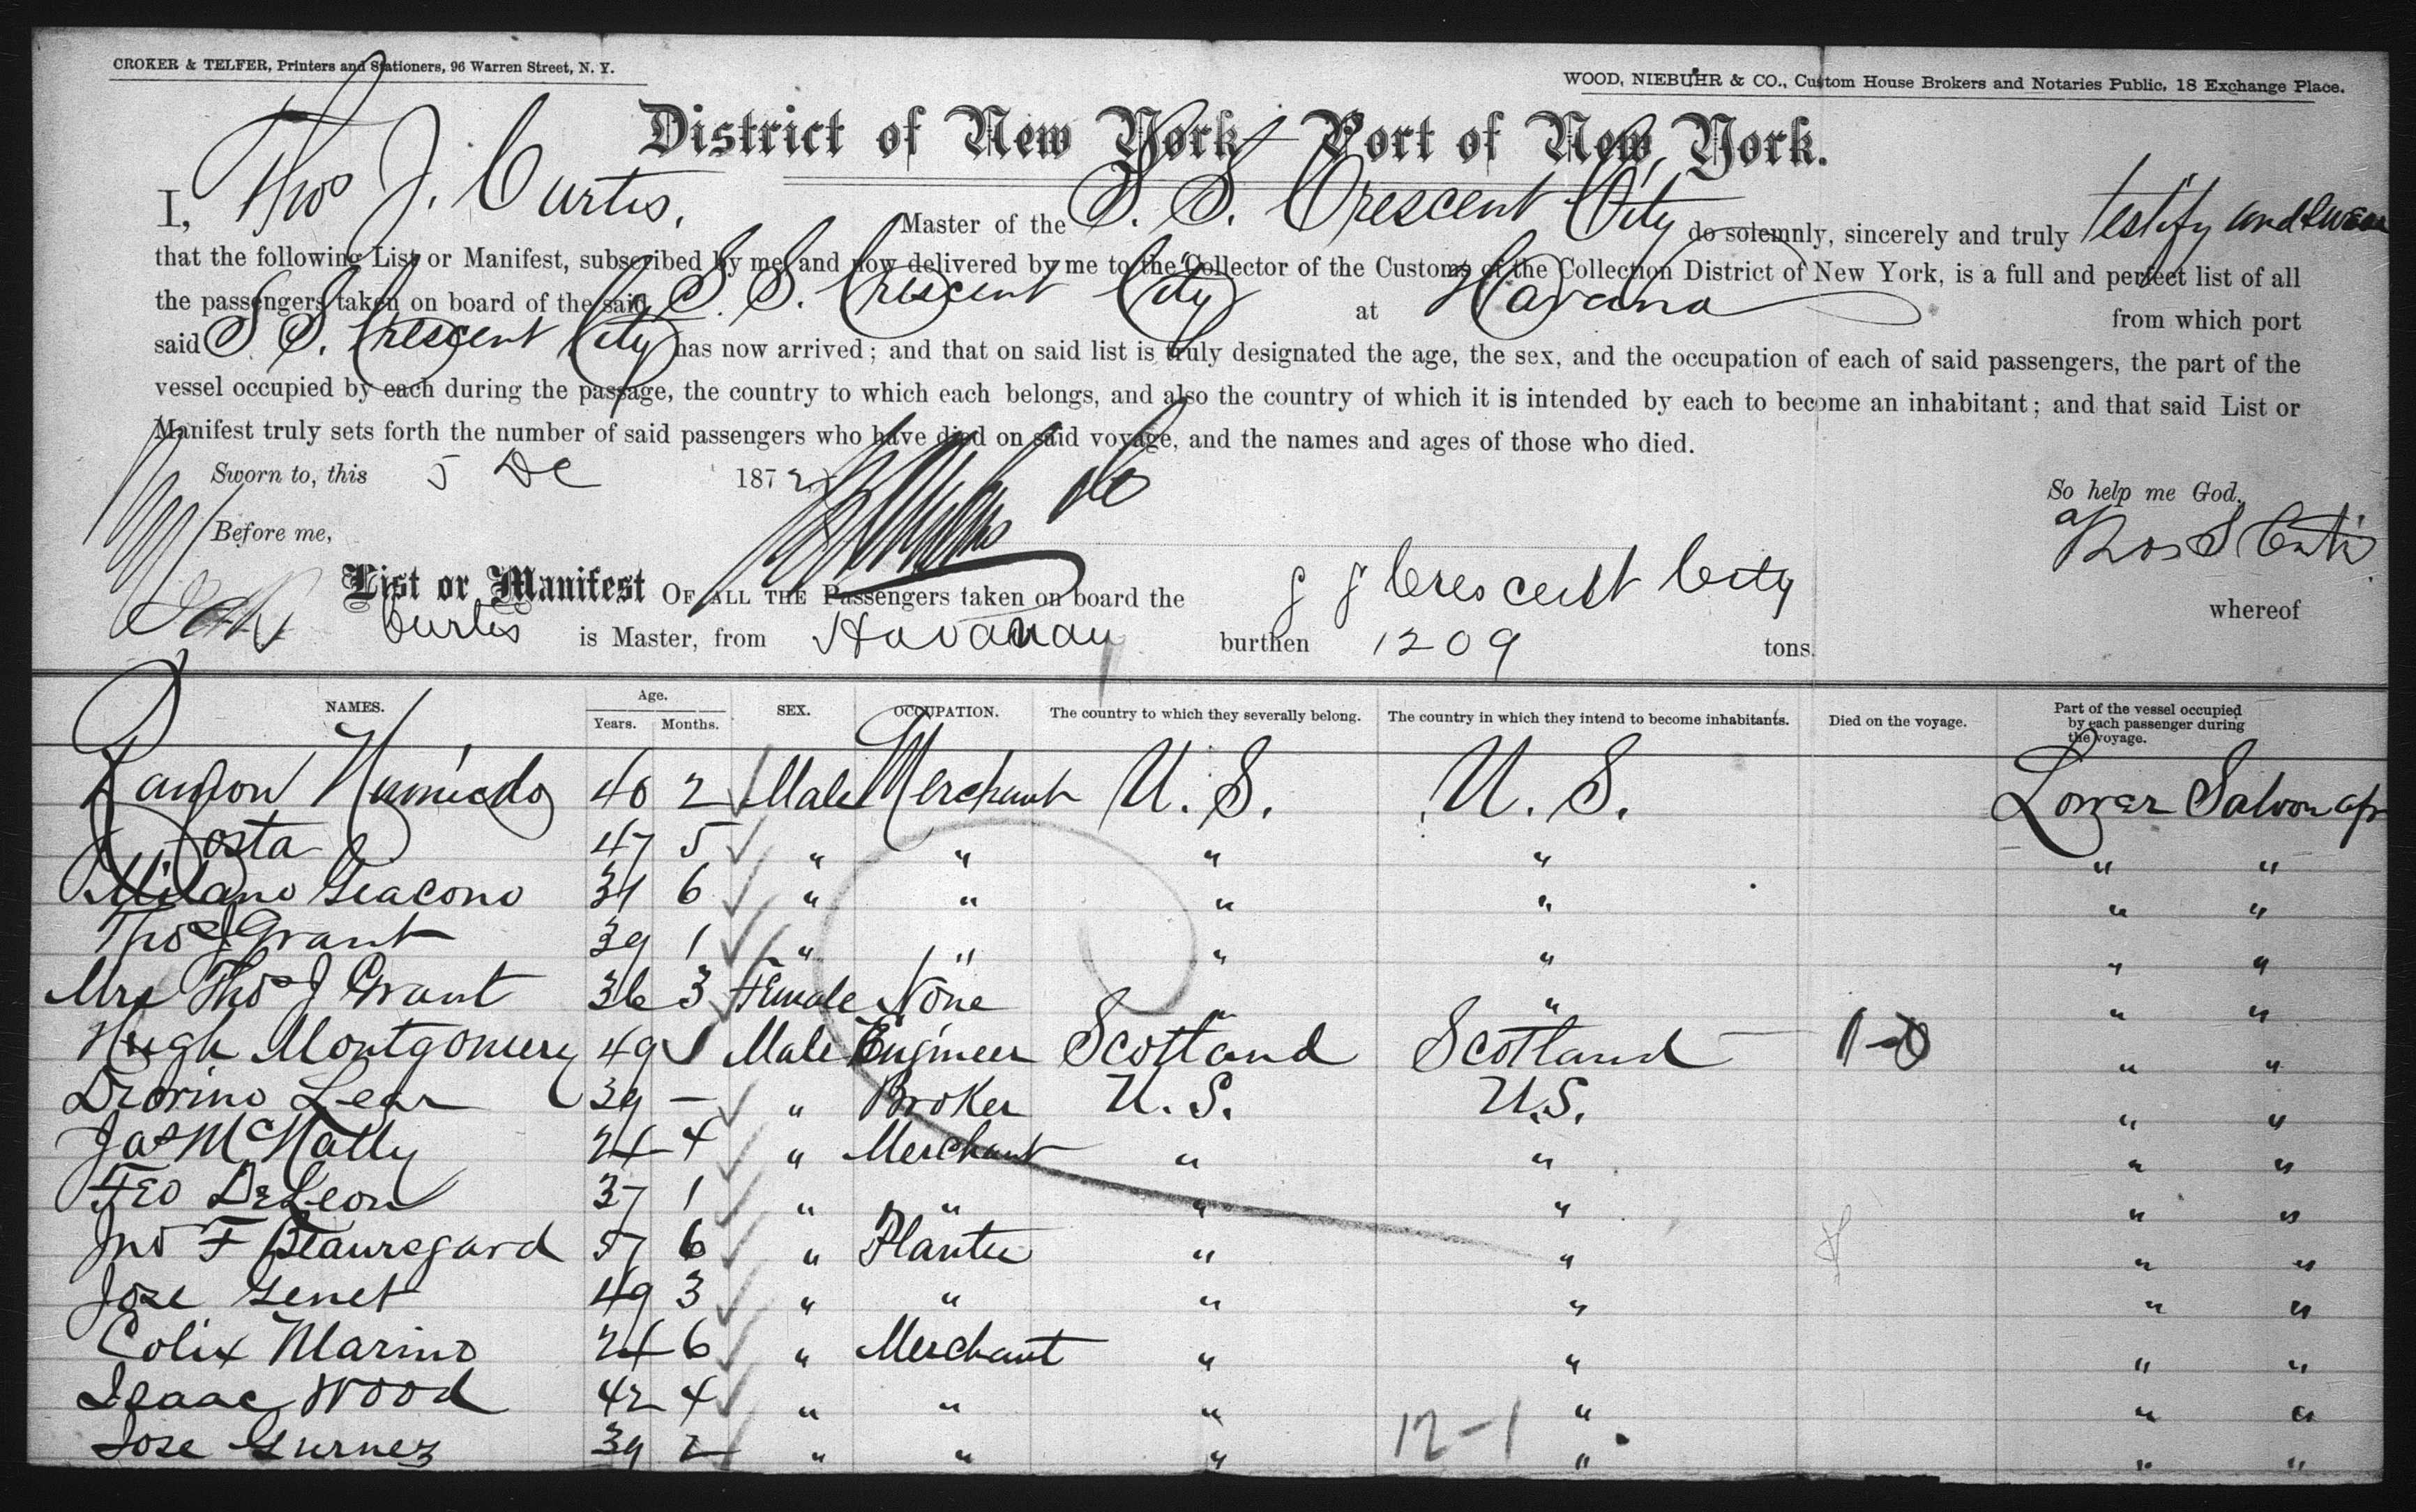 CROKER & TELFER, Printers and Stationers, 96 Warren Street, N. Y.
WOOD, NIEBUHR & CO., Custom House Brokers and Notaries Public, 18 Exchange Place.
District of New York—Port of New York.
I, Thos J. Curtis, Master of the S. S. Crescent City do solemnly, sincerely and truly testify and swear
that the following List or Manifest, subscribed by me, and now delivered by me to the Collector of the Customs of the Collection District of New York, is a full and perfect list of all
the passengers taken on board of the said S. S. Crescent City at Havana from which port
said S. S. Crescent City has now arrived; and that on said list is truly designated the age, the sex, and the occupation of each of said passengers, the part of the
vessel occupied by each during the passage, the country to which each belongs, and also the country of which it is intended by each to become an inhabitant; and that said List or
Manifest truly sets forth the number of said passengers who have died on said voyage, and the names and ages of those who died.
Sworn to, this 5 De 1872
So help me God.
Before me,
List or Manifest OF ALL THE Passengers taken on board the S S Crescent City whereof
Curtis is Master, from Havana burthen 1209 tons.
NAMES. Age. Years. Months. SEX. OCCUPATION. The country to which they severally belong. The country in which they intend to become inhabitants. Died on the voyage. Part of the vessel occupied by each passenger during the voyage.
Ramon 40 2 Male Merchant U. S. U. S. Lower Saloon
Costa 47 5 " " " " " "
Milano Giacono 31 6 " " " " " "
Thos J Grant 39 1 " " " " " "
Mrs Thos J Grant 36 3 Female None " " " "
Hugh Montgomery 49 1 Male Engineer Scotland Scotland — " "
Lear 39 — " Broker U. S. U.S. " "
Jas McNally 24 4 " Merchant " " " "
Geo DeLeon 37 1 " " " " " "
Jno F Beauregard 57 6 " Planter " " " "
Jose Genet 49 3 " " " " " "
Colix Marino 24 6 " Merchant " " " "
Isaac Wood 42 4 " " " " " "
Jose Gurnez 39 2 " " " " " "
12-1